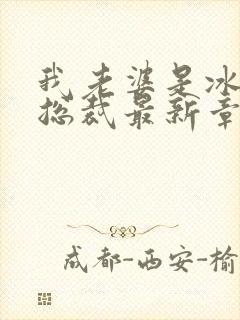 我老婆是冰
总裁最新章
成都-西安-榆